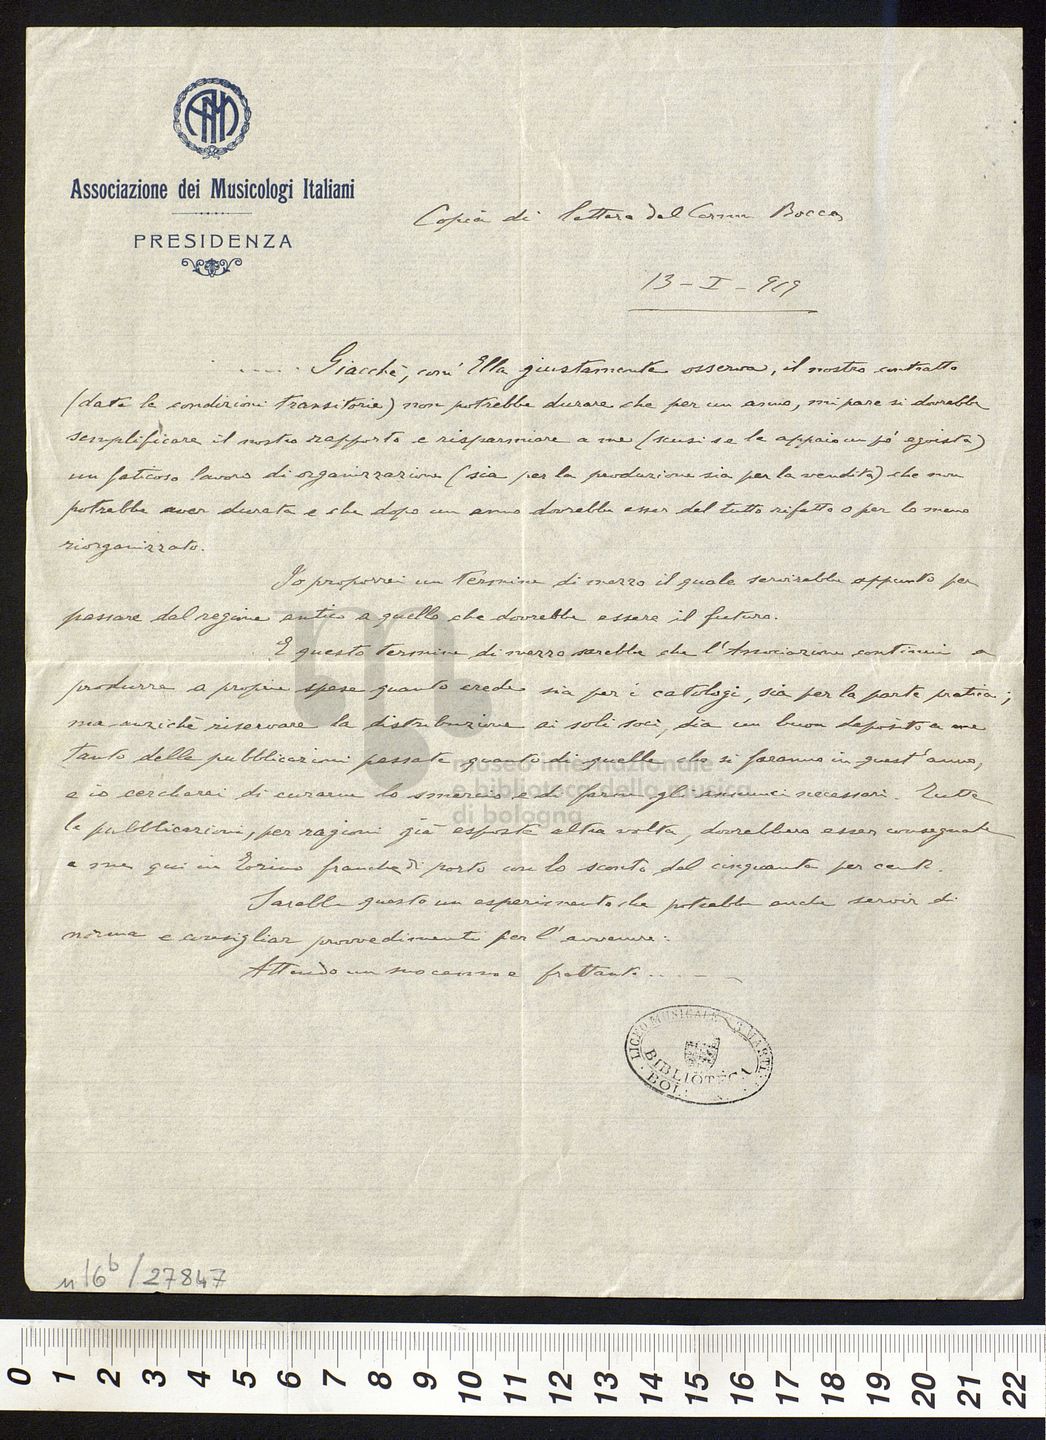 AMI
Associazione dei Musicologi Italiani
PRESIDENZA
Copia di lettera del Comm Bocca
13 - I - 919
..... Giacchè, com' Ella giustamente osserva, il nostro contratto
(date le condizioni transitorie) non potrebbe durare che per un anno, mi pare si dovrebbe
semplificare il nostro rapporto e risparmiare a me (scusi se le appaio un pò egoista)
un faticoso lavoro di organizzazione (sia per la produzione sia per la vendita) che non
potrebbe aver durata e che dopo un anno dovrebbe esser del tutto rifatto o per lo meno
riorganizzato.
Io proporrei un termine di mezzo il quale servirebbe appunto per
passare dal regime antico a quello che dovrebbe essere il futuro.
E questo termine di mezzo sarebbe che l'Associazione continui a
produrre a proprie spese quanto crede sia per i catalogi, sia per la parte pratica;
ma anzichè riservare la distribuzione ai soli soci, dia un buon deposito a me
tanto delle pubblicazioni passate quanto di quelle che si faranno in quest'anno,
e io cercherei di curarne lo smercio e di farne gli annunci necessari. Tutte
le pubblicazioni, per ragioni già esposte altra volta, dovrebbero esser consegnate
a me qui in Torino franche di porto con lo sconto del cinquanta per cento.
Sarebbe questo un esperimento che potrebbe anche servir di
norma e consigliar provvedimenti per l'avvenire.
Attendo un suo cenno e frattanto .....
LICEO MUSICALE G. MARTI
BIBLIOTECA
BOL
museo internazionale
e biblioteca della musica
di bologna
n 16b / 27847
0 1 2 3 4 5 6 7 8 9 10 11 12 13 14 15 16 17 18 19 20 21 22